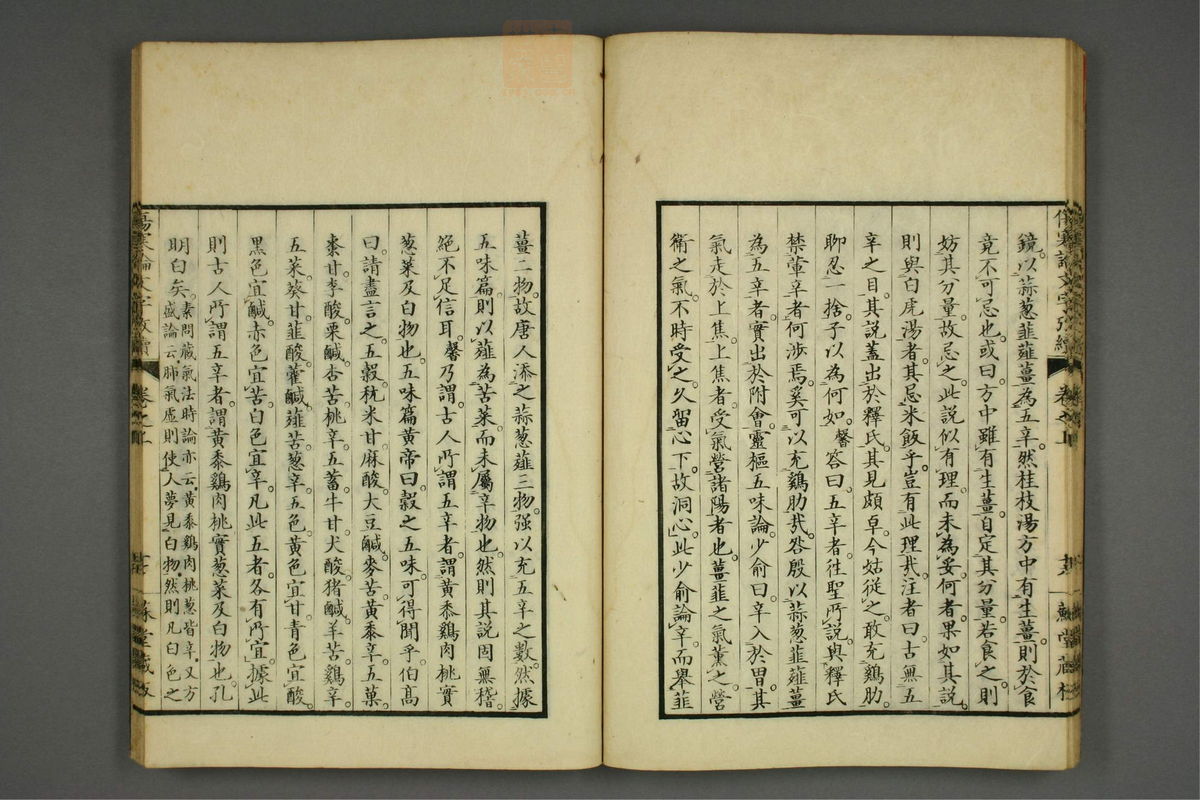 鏡。以蒜葱韮薤薑為五辛。然桂枝湯方中有生薑。則於食
竟不可忌也。或曰。方中雖有生薑。自定其分量。若食之。則
妨其分量。故忌之。此説似有理。而未為妥。何者。果如其説。
則與白虎湯者。其忌米飯乎。豈有此理哉。注者曰。古無五
辛之目。其説蓋出於釋氏。其見頗卓。今姑從之。敢充鷄肋。
聊忍一捨。子以為何如。馨答曰。五辛者。徃聖所説。與釋氏
禁葷辛者。何渉焉。奚可以充鷄肋哉。咎殷以蒜葱韮薤薑
為五辛者。實出於附會。靈樞五味論。少俞曰。辛入於胃。其
氣走於上焦。上焦者。受氣營諸陽者也。薑韮之氣薫之。營
衛之氣。不時受之。久留心下。故洞心。此少俞論辛。而舉韮
薑二物。故唐人添之蒜葱薤三物。强以充五辛之數。然據
五味篇。則以薤為苦菜。而未屬辛物也。然則其説固無稽。
絶不足信耳。馨乃謂。古人所謂五辛者。謂黄黍鷄肉桃實
葱菜及白物也。五味篇。黄帝曰。穀之五味。可得聞乎。伯高
曰。請盡言之。五穀。秔米甘。麻酸。大豆鹹。麥苦。黄黍辛。五菓。
棗甘。李酸。栗鹹。杏苦。桃辛。五畜。牛甘。犬酸。猪鹹。羊苦。鷄辛。
五菜。葵甘。韮酸。藿鹹。薤苦。葱辛。五色。黄色宜甘。青色宜酸。
黒色宜鹹。赤色宜苦。白色宜辛。凡此五者。各有所宜。據此
則古人所謂五辛者。謂黄黍鷄肉桃實葱菜及白物也。孔
明白矣。素問藏氣法時論亦云。黄黍鷄肉桃葱皆辛。又方
盛論云。肺氣虚則使人夢見白物。然則凡白色之
卷之
蘇堂藏板